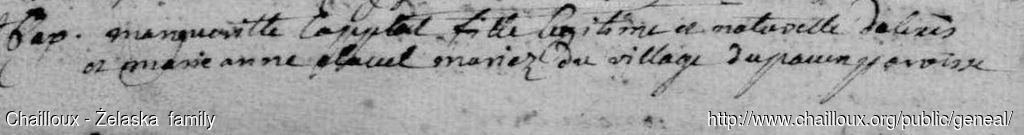 Bap. margueritte Cappital fille legitime et naturelle dalexis
et marie anne clavel mariez du village du pauen parroisse
Chailloux - Żelaska family
http://www.chailloux.org/public/geneal/